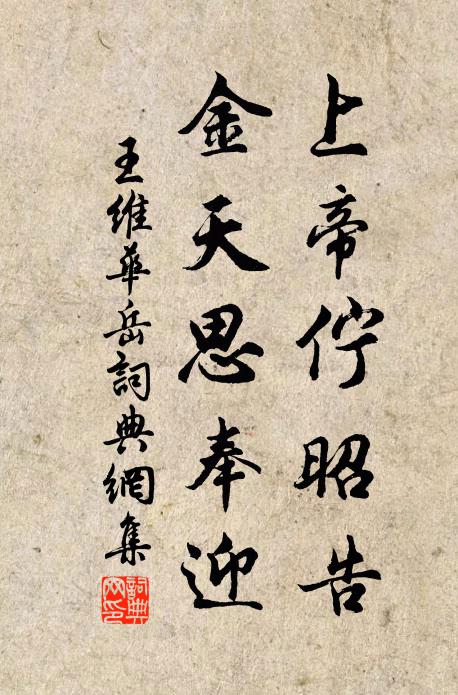 上帝佇昭告
金天思奉迎
王維華岳詞典網集
詞典网印